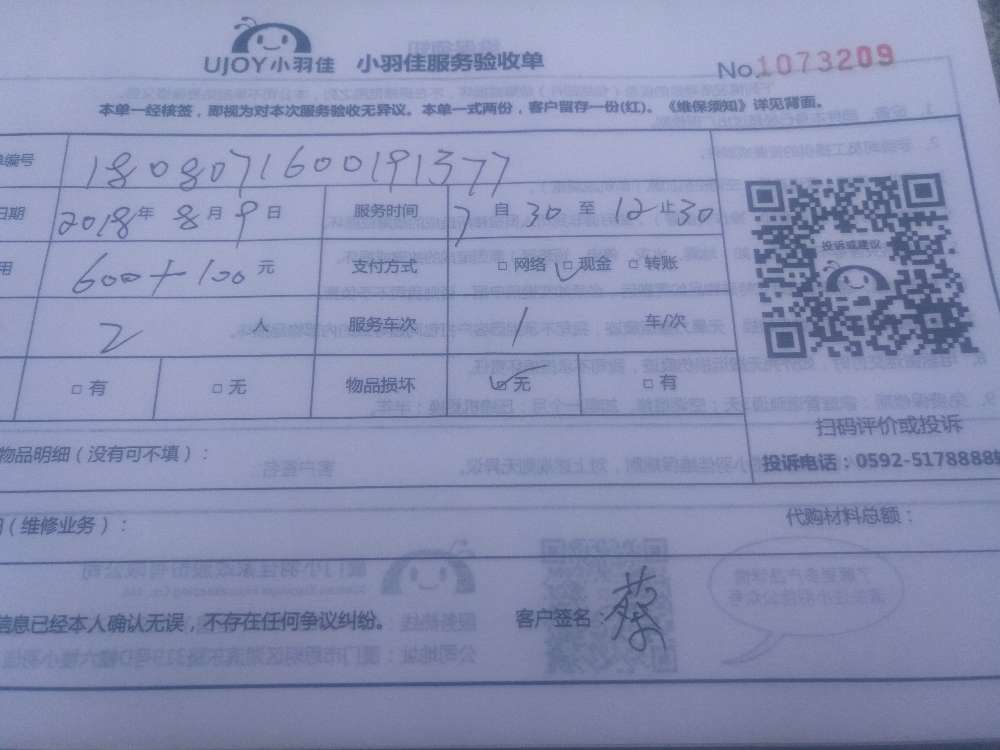 UJOY小羽佳 小羽佳服务验收单 No.1073209
本单一经核签，即视为对本次服务验收无异议。本单一式两份，客户留存一份(红)。《维保须知》详见背面。
单编号 1808071600191377
日期 2018年8月9日 服务时间 7自30至12止30
用 600+100元 支付方式 □网络 □现金 □转账
2 服务车次 1 车/次
□有 □无 物品损坏 □无 □有
投诉或建议
扫码评价或投诉
物品明细（没有可不填）：
投诉电话：0592-5178888
（维修业务）： 代购材料总额：
信息已经本人确认无误，不存在任何争议纠纷。 客户签名：蔡